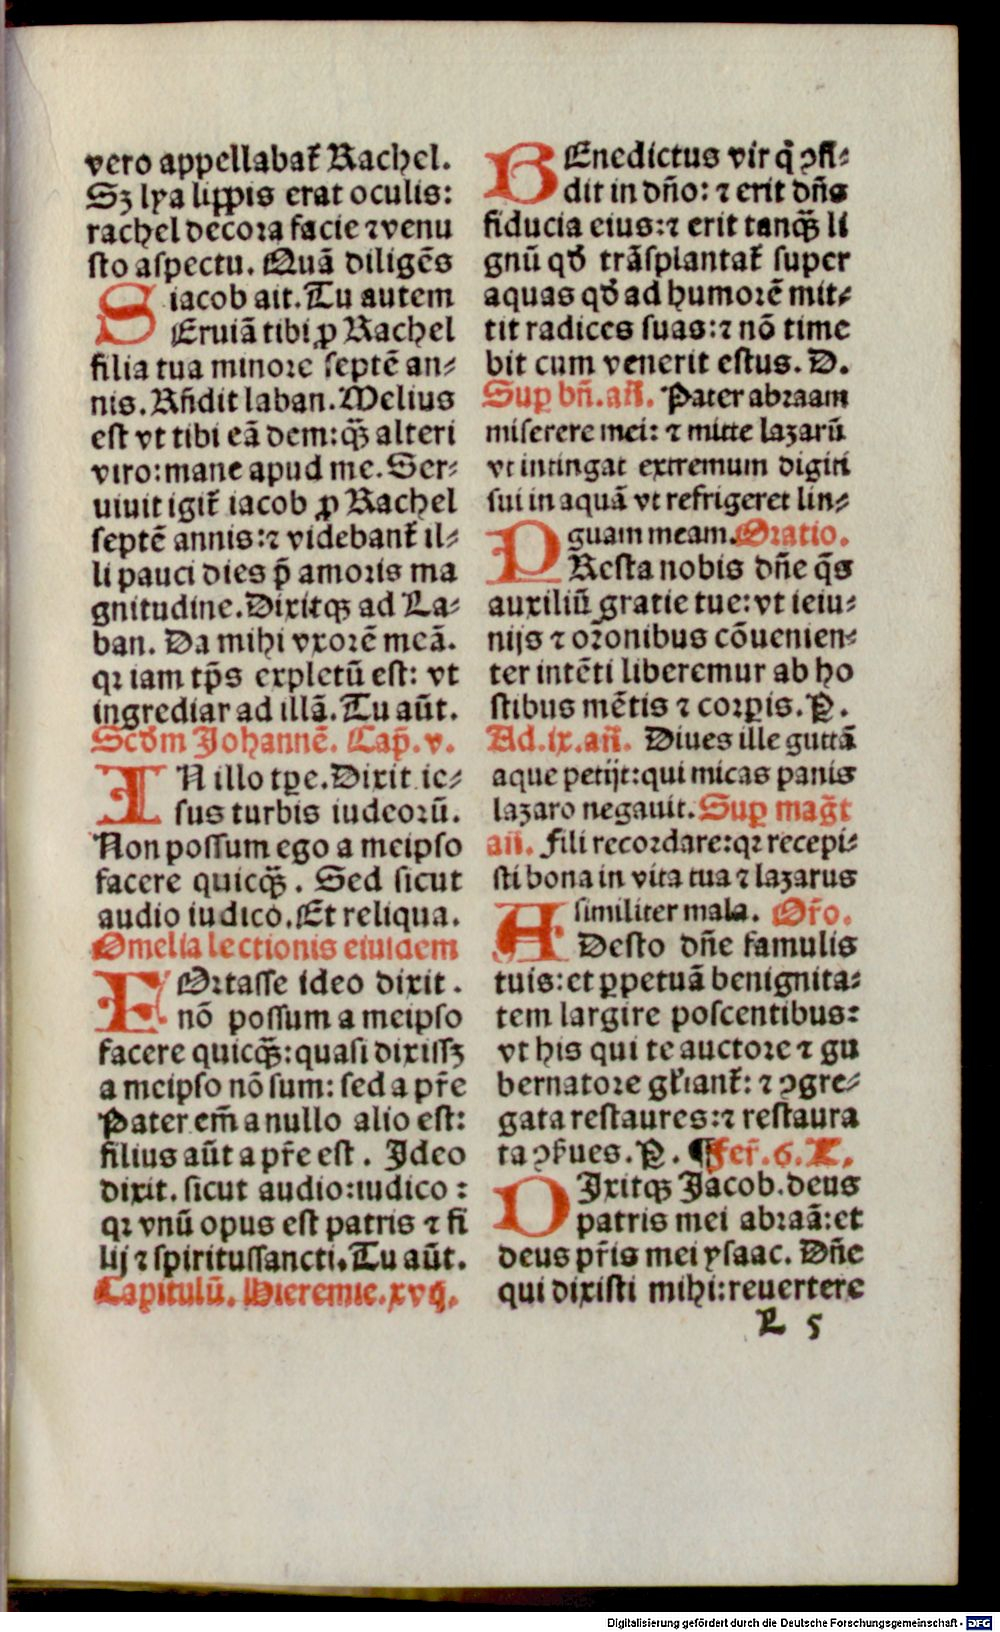 vero appellabat̃ Rachel.
Sꝫ lya lippis erat oculis:
rachel decora facie ⁊ venu
sto aspectu. Quã diligẽs
iacob ait. Tu autem
SEruiã tibi ꝓ Rachel
filia tua minore septẽ an⸗
nis. Rñdit laban. Melius
est vt tibi eã dem: qꝫ̃ alteri
viro: mane apud me. Ser⸗
uiuit igit̃ iacob ꝓ Rachel
septẽ annis: ⁊ videbant̃ il⸗
li pauci dies p̃ amoris ma
gnitudine. Dixitqꝫ ad La⸗
ban. Da mihi vxorẽ meã.
qꝛ iam tp̃s expletũ est: vt
ingrediar ad illã. Tu aũt.
Scd̃m Johannẽ. Cap̃. v.
IN illo tꝑe. Dixit ie⸗
sus turbis iudeorũ.
Non possum ego a meipso
facere quicqꝫ̃. Sed sicut
audio iudico. Et reliqua.
Omelia lectionis eiusdem
FOrtasse ideo dixit.
nõ possum a meipso
facere quicqꝫ̃: quasi dixissꝫ
a meipso nõ sum: sed a pr̃e
Pater em̃ a nullo alio est:
filius aũt a pr̃e est. Ideo
dixit. sicut audio: iudico:
qꝛ vnũ opus est patris ⁊ fi
lij ⁊ spiritussancti. Tu aũt.
Capitulũ. Hieremie. xvij.
BEnedictus vir q̃ ꝯfi⸗
dit in dño: ⁊ erit dñs
fiducia eius: ⁊ erit tanqꝫ̃ li
gnũ qđ trãsplantat̃ super
aquas qđ ad humorẽ mit⸗
tit radices suas: ⁊ nõ time
bit cum venerit estus. D.
Suꝑ bñ. añ. Pater abraam
miserere mei: ⁊ mitte lazarũ
vt intingat extremum digiti
sui in aquã vt refrigeret lin⸗
guam meam. Oratio.
PResta nobis dñe q̃s
auxiliũ gratie tue: vt ieiu⸗
nijs ⁊ or̃onibus cõuenien⸗
ter intẽti liberemur ab ho
stibus mẽtis ⁊ corꝑis. P.
Ad. ix. añ. Diues ille guttã
aque petijt: qui micas panis
lazaro negauit. Suꝑ mag̃t
añ. Fili recordare: qꝛ recepi⸗
sti bona in vita tua ⁊ lazarus
similiter mala. Or̃o.
ADesto dñe famulis
tuis: et ꝑpetuã benignita⸗
tem largire poscentibus:
vt his qui te auctore ⁊ gu
bernatore gl̃iant̃: ⁊ ꝯgre⸗
gata restaures: ⁊ restaura
ta ꝯs̃ues. P. ¶ Fer̃. 6. L.
DIxitqꝫ Jacob. deus
patris mei abraã: et
deus pr̃is mei ysaac. Dñe
qui dixisti mihi: reuertere
L 5
Digitalisierung gefördert durch die Deutsche Forschungsgemeinschaft - DFG